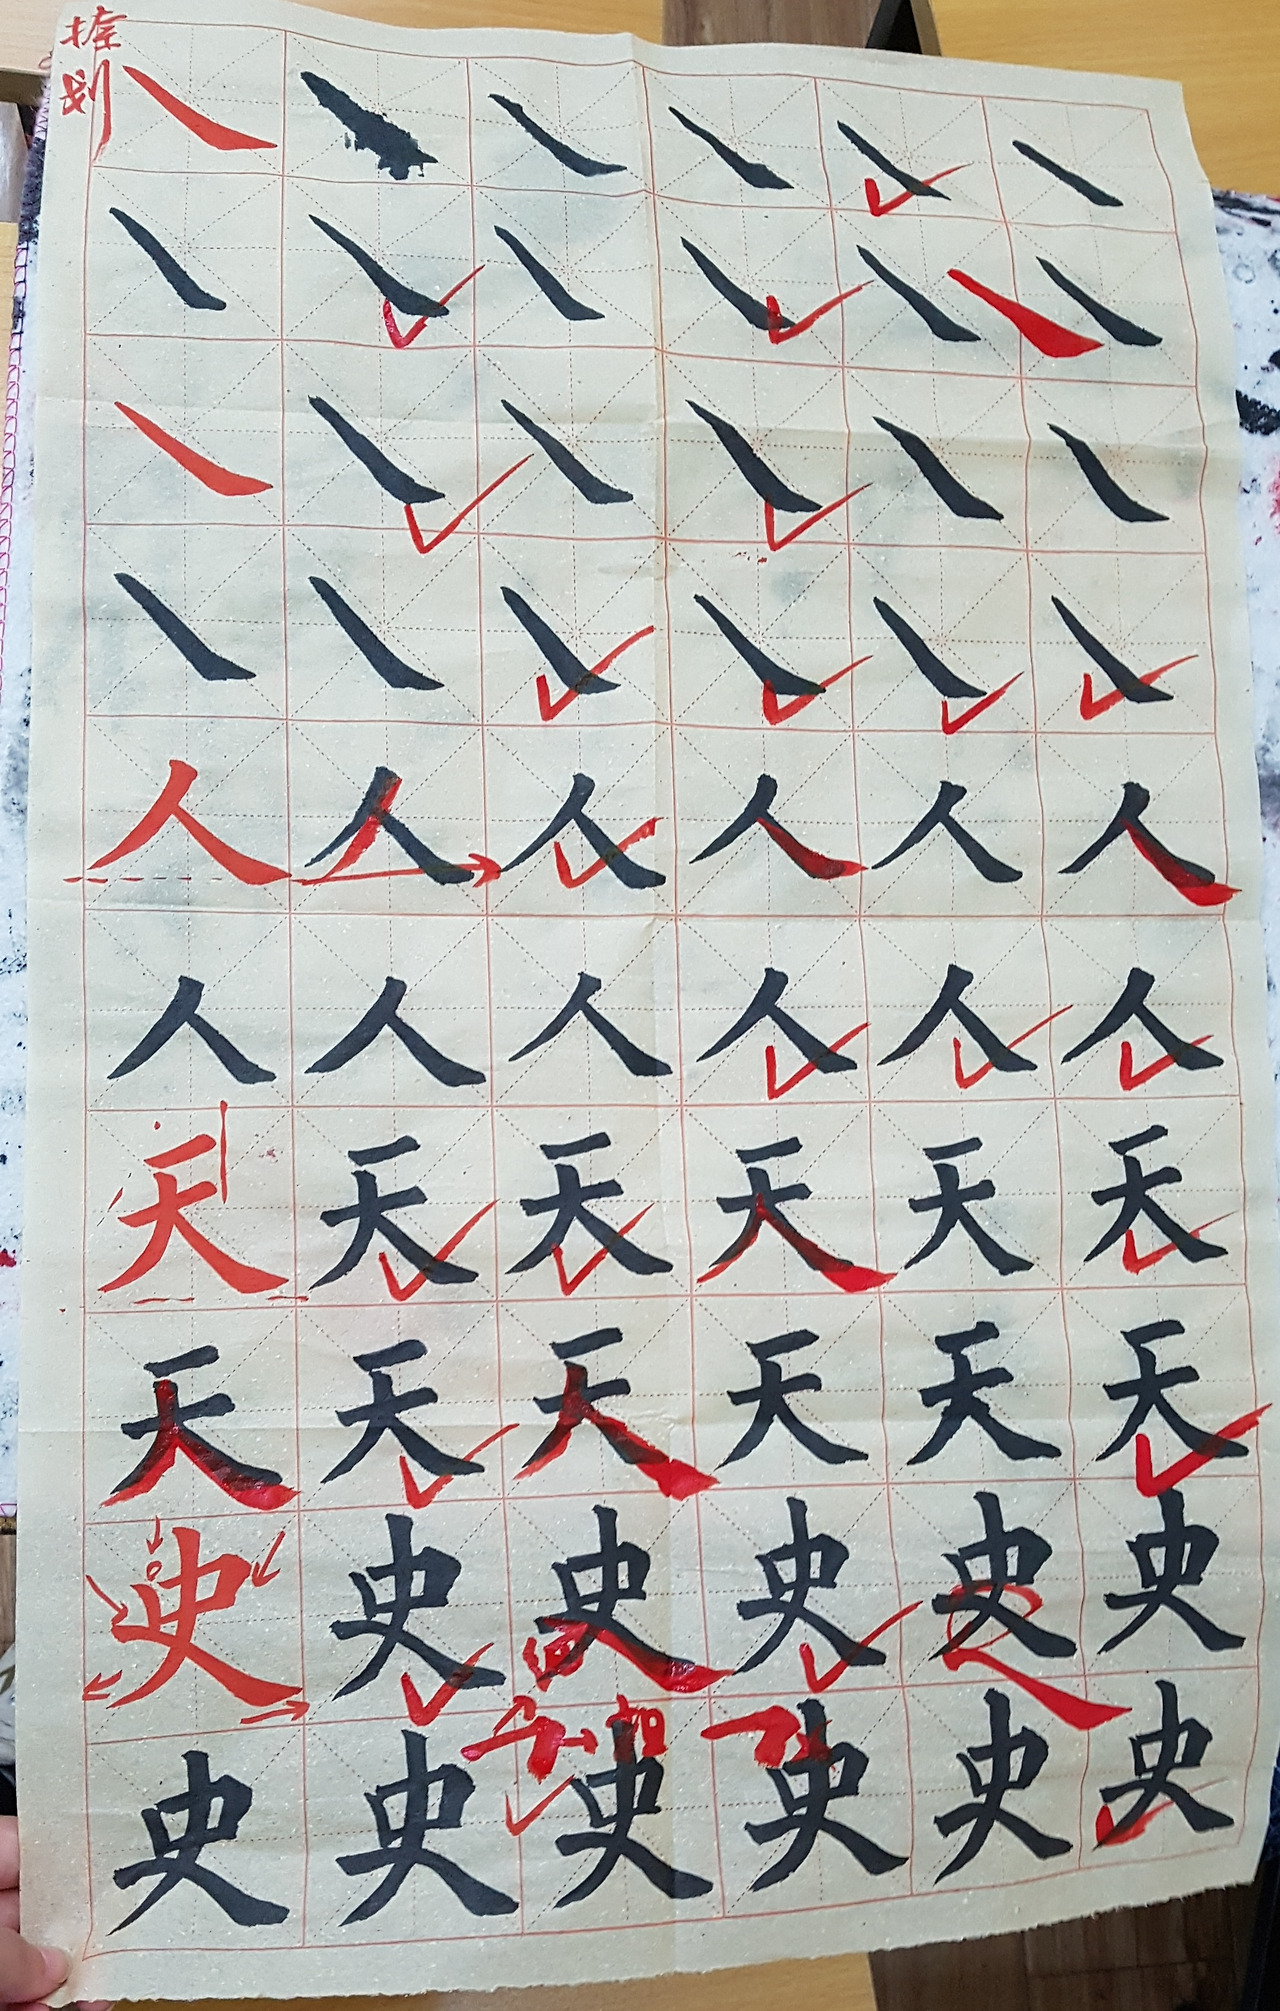 捺划
人人人人人人
人人人人人人
天天天天天天
天天天天天天
史史史史史史
史史史史史史